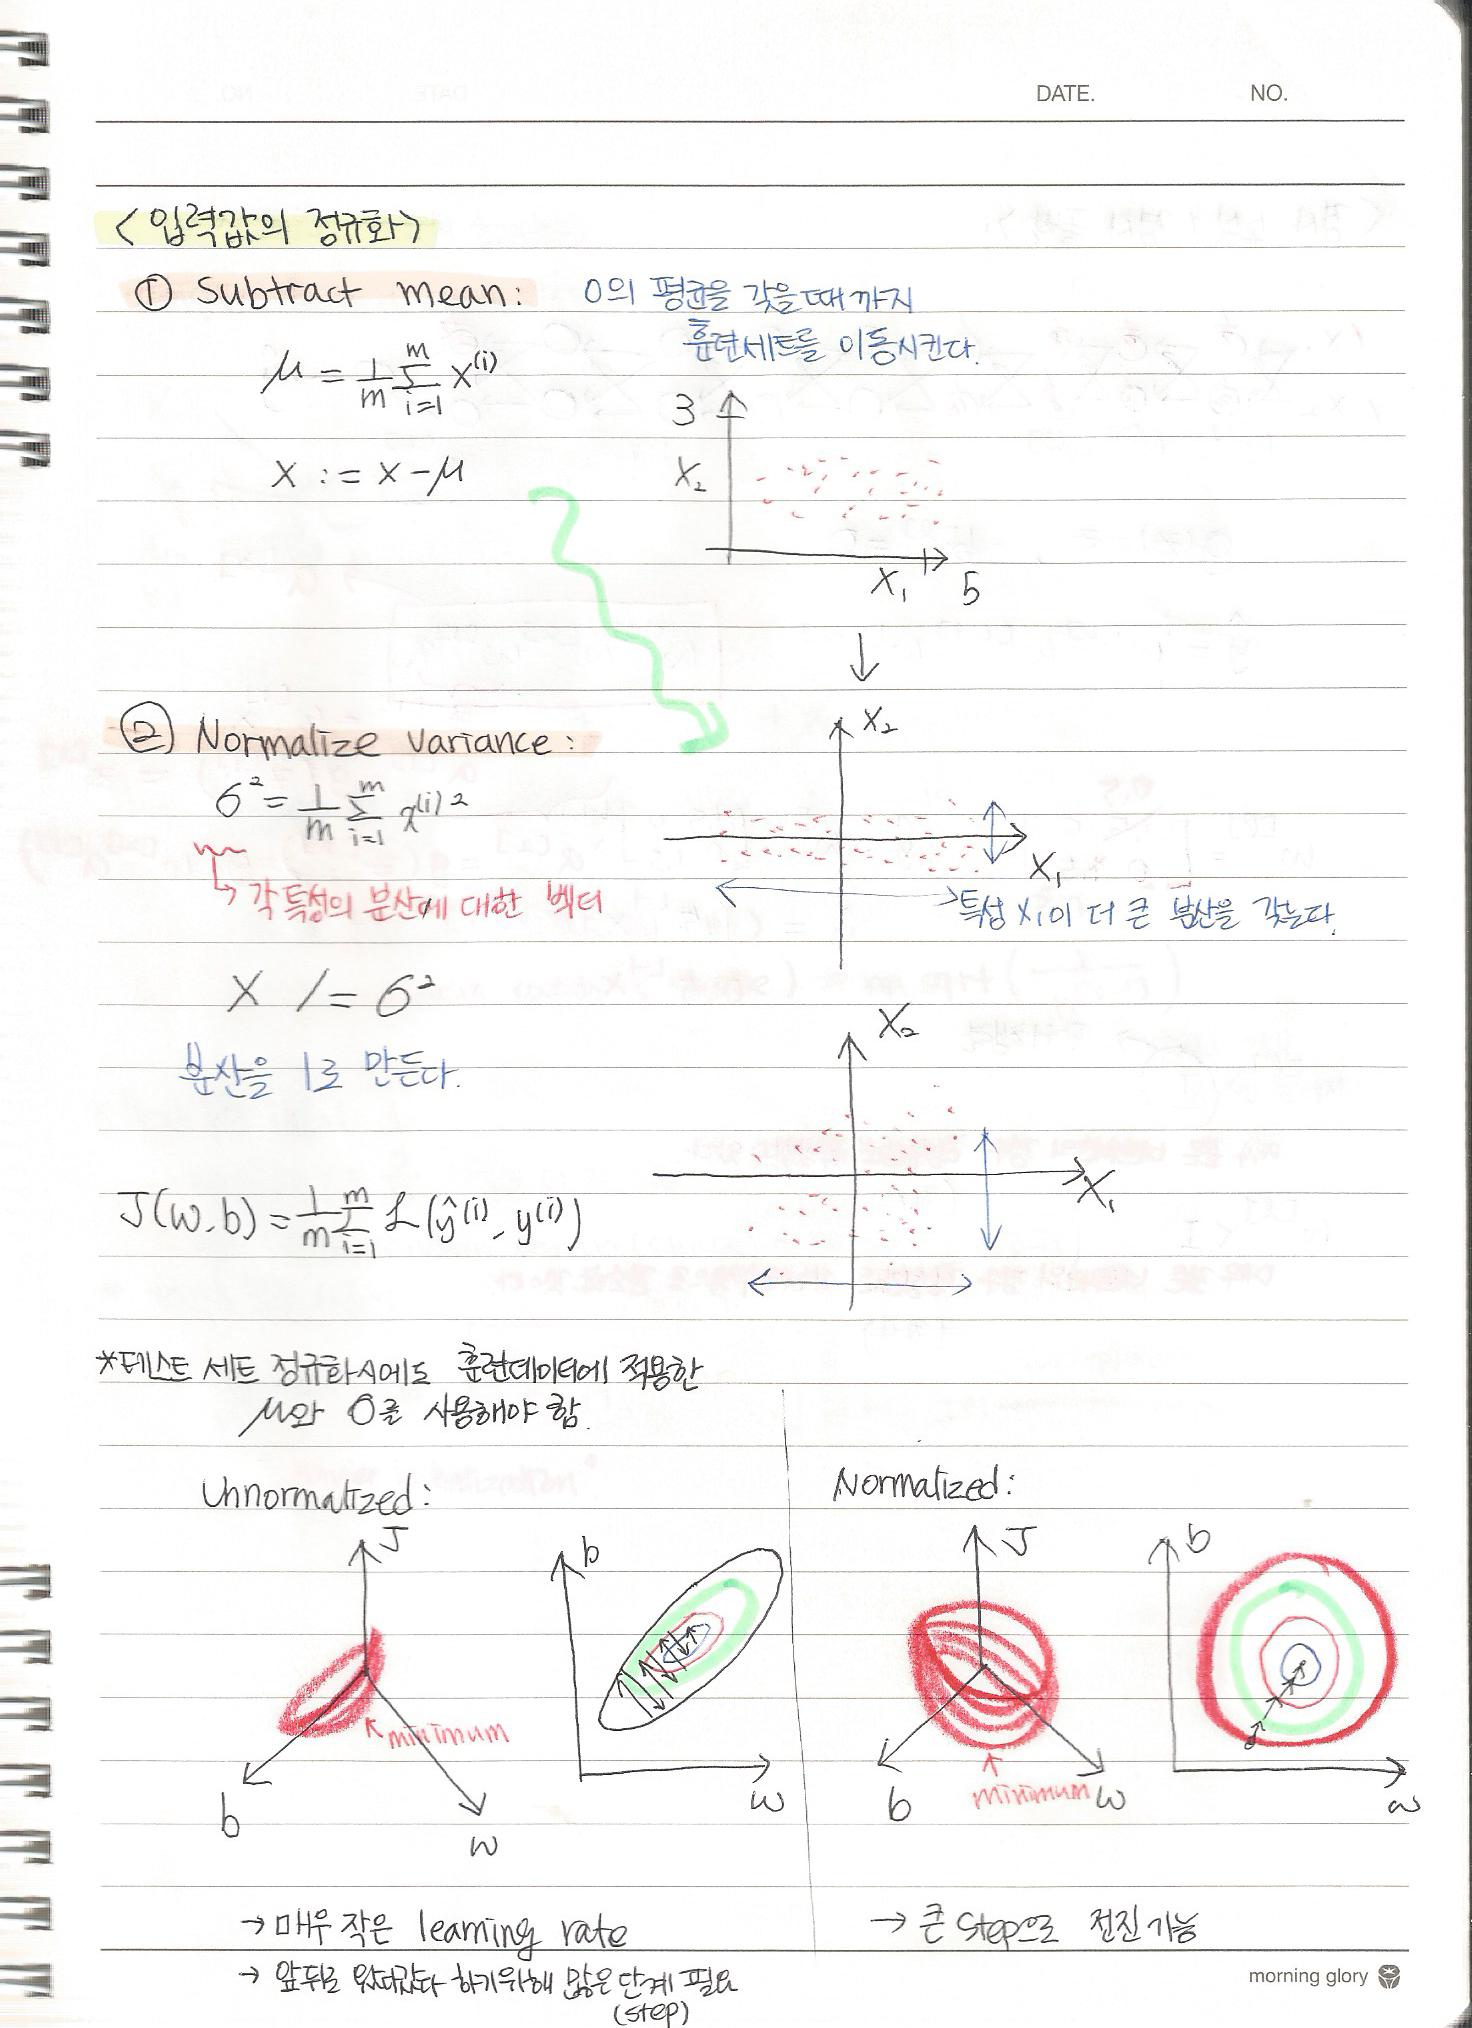 DATE. NO.
<입력값의 정규화>
① Subtract mean: 0의 평균을 갖을때까지
훈련세트를 이동시킨다.
μ = 1/m Σ_{i=1}^{m} x^{(i)}
x := x - μ
3
X₂
X₁ 5
② Normalize variance:
σ² = 1/m Σ_{i=1}^{m} x^{(i)2}
→ 각 특성의 분산에 대한 벡터
X₂
X₁
특성 X₁이 더 큰 분산을 갖는다.
X /= σ²
분산을 1로 만든다.
X₂
X₁
J(w, b) = 1/m Σ_{i=1}^{m} L(ŷ^{(i)}, y^{(i)})
*테스트 세트 정규화시에도 훈련데이터에 적용한
μ와 σ를 사용해야 함.
Unnormalized:
J
minimum
b
w
b
w
Normalized:
J
minimum
b
w
b
w
→ 매우 작은 learning rate
→ 앞뒤로 왔다갔다 하기위해 많은 단계 필요
(step)
→ 큰 step으로 전진 가능
morning glory